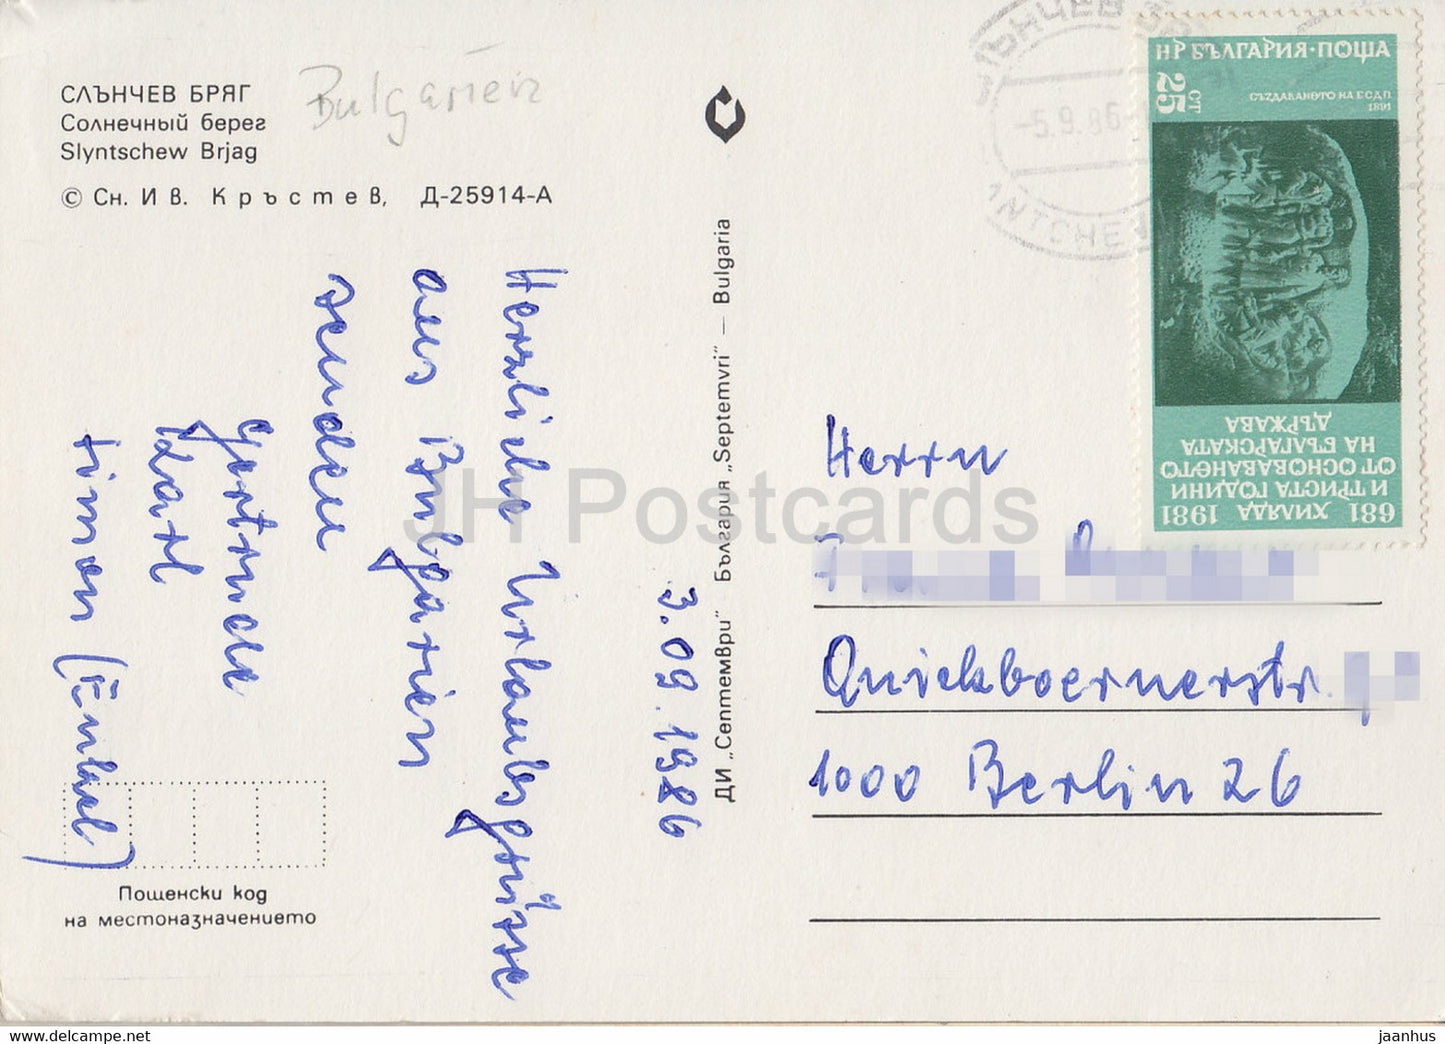 СЛЪНЧЕВ БРЯГ
Солнечный берег
Slyntschew Brjag
© Сн. Ив. Кръстев, Д-25914-А
Bulgarien
3.09.1986
Herzliche Urlaubsgrüsse
aus Bulgarien
senden
Gertrud
Karl
Timon (Enkel)
Пощенски код
на местоназначението
ДИ „Септември" България „Septemvri" — Bulgaria
-5.9.86
НР БЪЛГАРИЯ·ПОЩА
25 СТ
СЪЗДАВАНЕТО НА БСДП
1891
681 ХИЛЯДА 1981
И ТРИСТА ГОДИНИ
ОТ ОСНОВАВАНЕТО
НА БЪЛГАРСКАТА
ДЪРЖАВА
Herrn
Quickboernerstr.
1000 Berlin 26
JH Postcards
www.delcampe.net
jaanhus